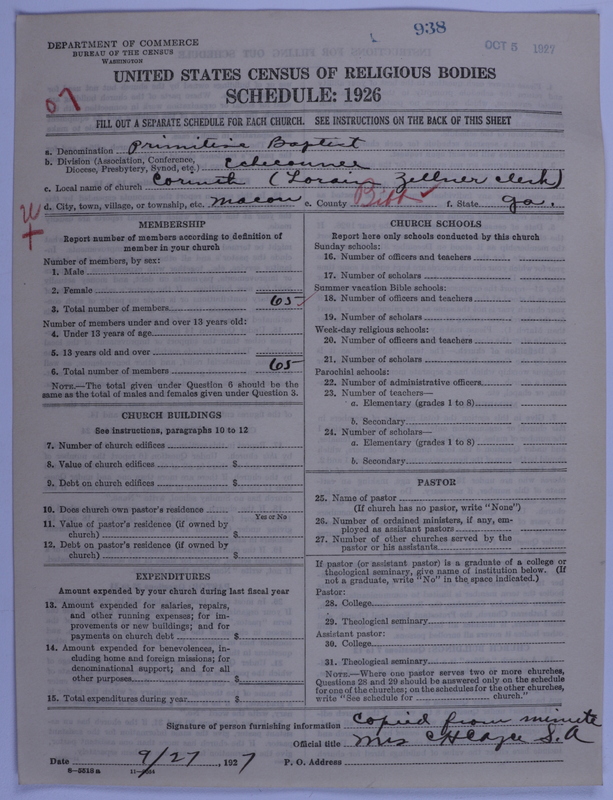 938
OCT 5 1927
DEPARTMENT OF COMMERCE
BUREAU OF THE CENSUS
WASHINGTON
UNITED STATES CENSUS OF RELIGIOUS BODIES
SCHEDULE: 1926
FILL OUT A SEPARATE SCHEDULE FOR EACH CHURCH. SEE INSTRUCTIONS ON THE BACK OF THIS SHEET
a. Denomination Primitive Baptist
b. Division (Association, Conference,
Diocese, Presbytery, Synod, etc.)
c. Local name of church Corinth (Lorain Zellner clerk)
d. City, town, village, or township, etc. Macon e. County Bibb f. State Ga.
MEMBERSHIP
Report number of members according to definition of
member in your church
Number of members, by sex:
1. Male
2. Female
3. Total number of members 65
Number of members under and over 13 years old:
4. Under 13 years of age
5. 13 years old and over
6. Total number of members 65
NOTE.—The total given under Question 6 should be the
same as the total of males and females given under Question 3.
CHURCH BUILDINGS
See instructions, paragraphs 10 to 12
7. Number of church edifices
8. Value of church edifices $
9. Debt on church edifices $
10. Does church own pastor's residence?
Yes or No
11. Value of pastor's residence (if owned by
church) $
12. Debt on pastor's residence (if owned by
church) $
EXPENDITURES
Amount expended by your church during last fiscal year
13. Amount expended for salaries, repairs,
and other running expenses; for im-
provements or new buildings; and for
payments on church debt $
14. Amount expended for benevolences, in-
cluding home and foreign missions; for
denominational support; and for all
other purposes $
15. Total expenditures during year $
CHURCH SCHOOLS
Report here only schools conducted by this church
Sunday schools:
16. Number of officers and teachers
17. Number of scholars
Summer vacation Bible schools:
18. Number of officers and teachers
19. Number of scholars
Week-day religious schools:
20. Number of officers and teachers
21. Number of scholars
Parochial schools:
22. Number of administrative officers
23. Number of teachers—
a. Elementary (grades 1 to 8)
b. Secondary
24. Number of scholars—
a. Elementary (grades 1 to 8)
b. Secondary
PASTOR
25. Name of pastor
(If church has no pastor, write "None")
26. Number of ordained ministers, if any, em-
ployed as assistant pastors
27. Number of other churches served by the
pastor or his assistants
If pastor (or assistant pastor) is a graduate of a college or
theological seminary, give name of institution below. (If
not a graduate, write "No" in the space indicated.)
Pastor:
28. College
29. Theological seminary
Assistant pastor:
30. College
31. Theological seminary
NOTE.—Where one pastor serves two or more churches,
Questions 28 and 29 should be answered only on the schedule
for one of the churches; on the schedules for the other churches,
write "See schedule for church."
Signature of person furnishing information Copied from minute
Official title Mrs S.A
Date 9/27, 1927 P. O. Address